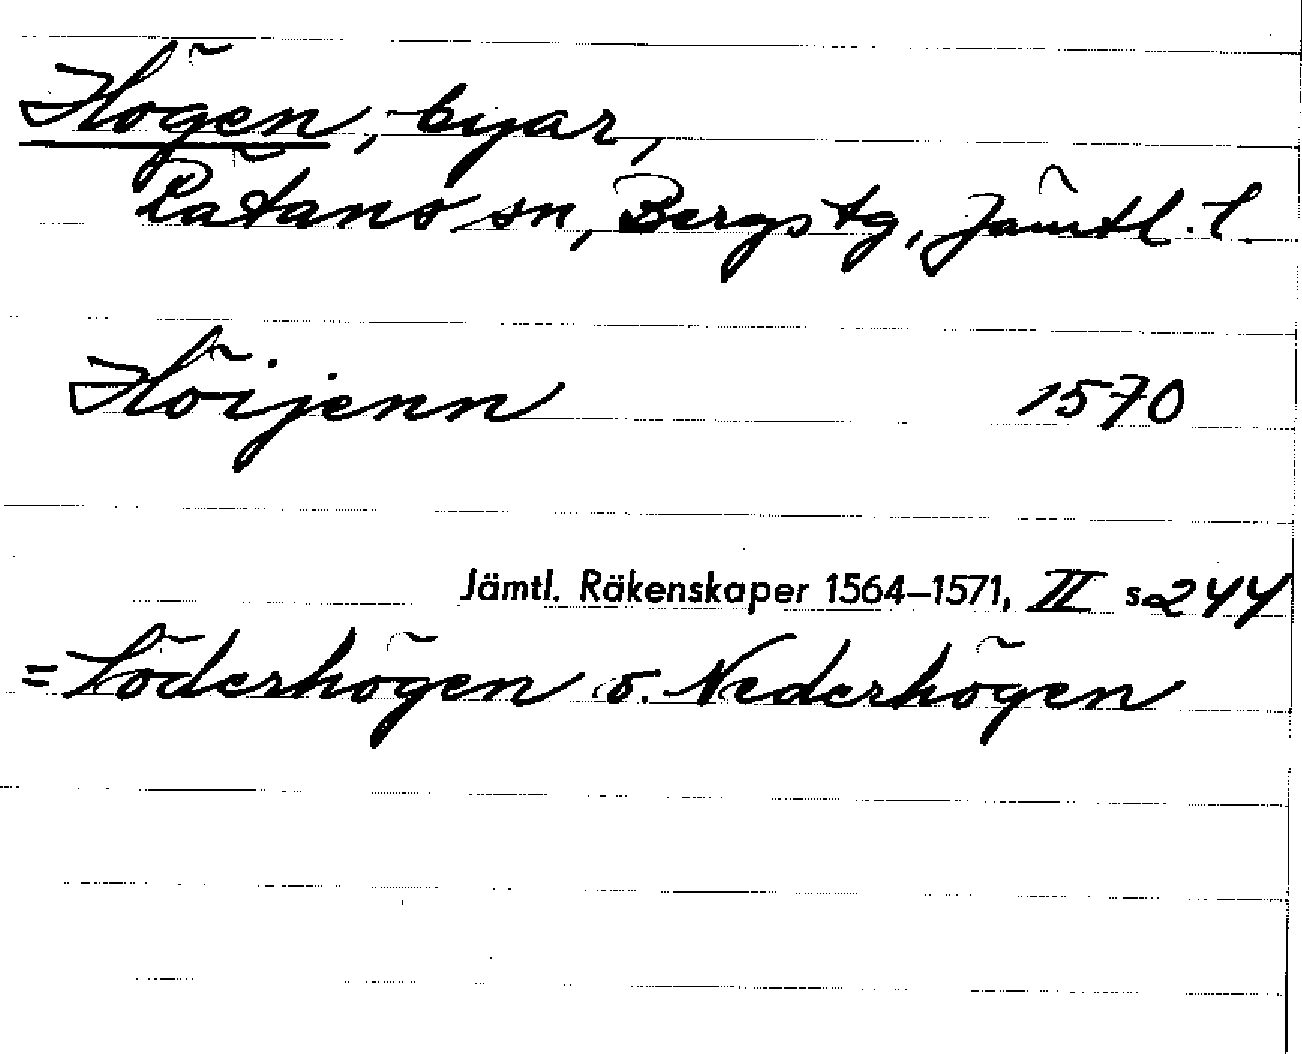 Högen, byar,
Rätans sn, Bergs tg, Jämtl. l.
Höijenn 1570
Jämtl. Räkenskaper 1564–1571, II s 244
= Söderhögen o. Nederhögen